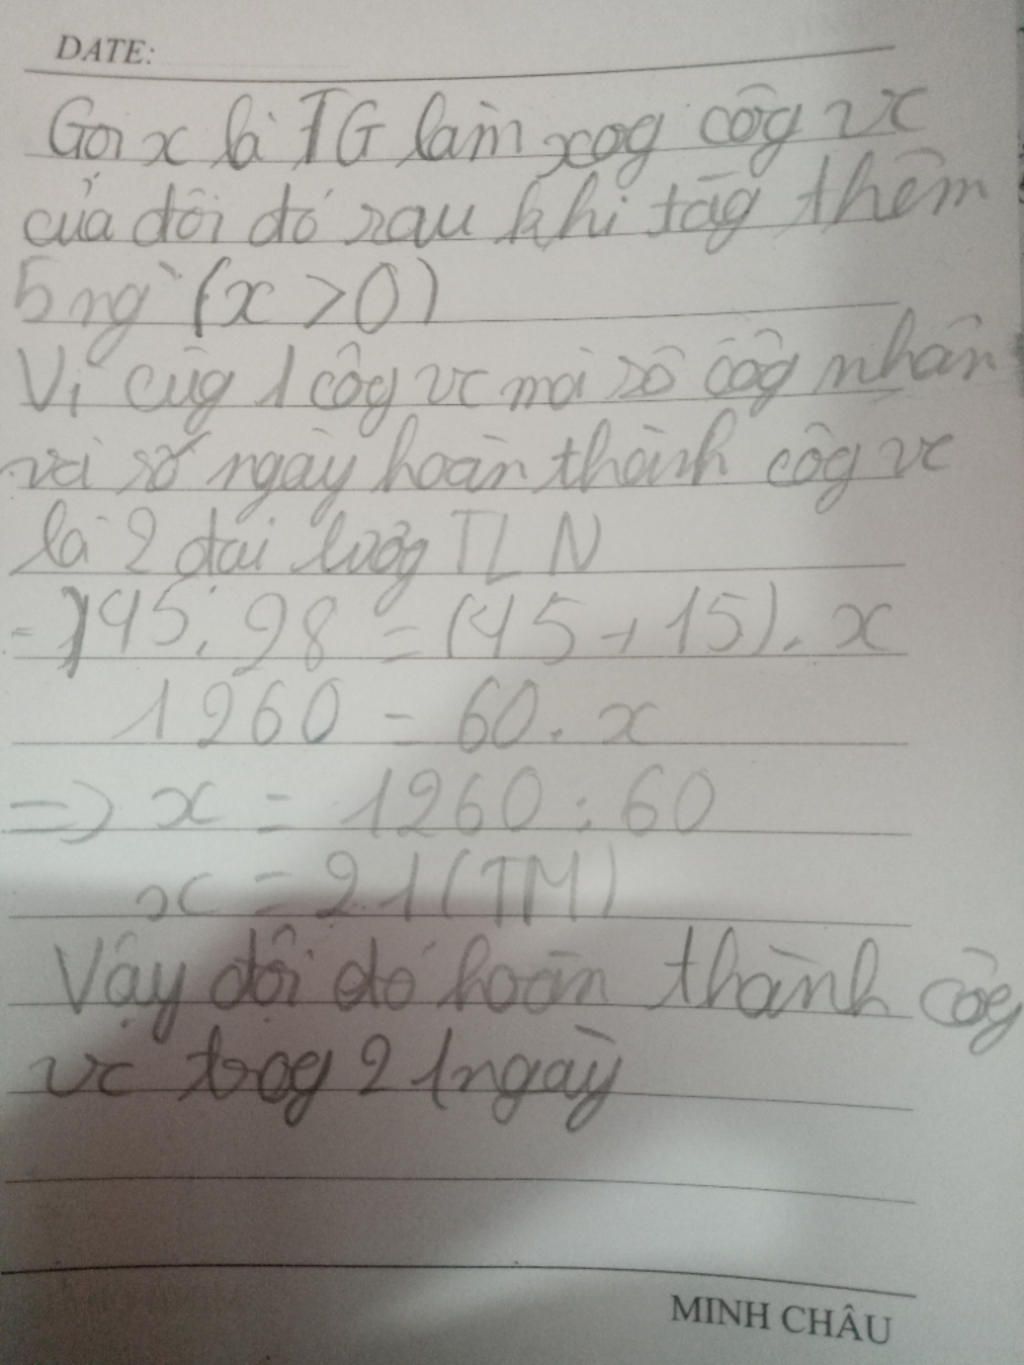 DATE:
Gọi x là TG làm xog côg vc
của đội đó sau khi tăg thêm
5 ng` (x > 0)
Vì cùg 1 côg vc mà số côg nhân
và số ngày hoàn thành côg vc
là 2 đại lượg TLN
=) 45. 28 = (45 + 15). x
1260 = 60. x
=> x = 1260 : 60
x = 21 (TM)
Vậy đội đó hoàn thành côg
vc trog 21 ngày
MINH CHÂU